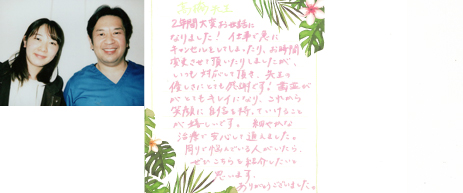 2年間大変お世話に
なりました！仕事で急に
キャンセルをしてしまったり、お時間
変更させて頂いたりしましたが、
いつも対応して頂き、先生の
優しさにとても感謝です！歯並び
がとてもキレイになり、これから
笑顔に自信を持っていけること
が嬉しいです。細やかな
治療で安心して通えました。
周りで悩んでいる人がいたら、
ぜひこちらを紹介したいと
思います。
ありがとうございました。